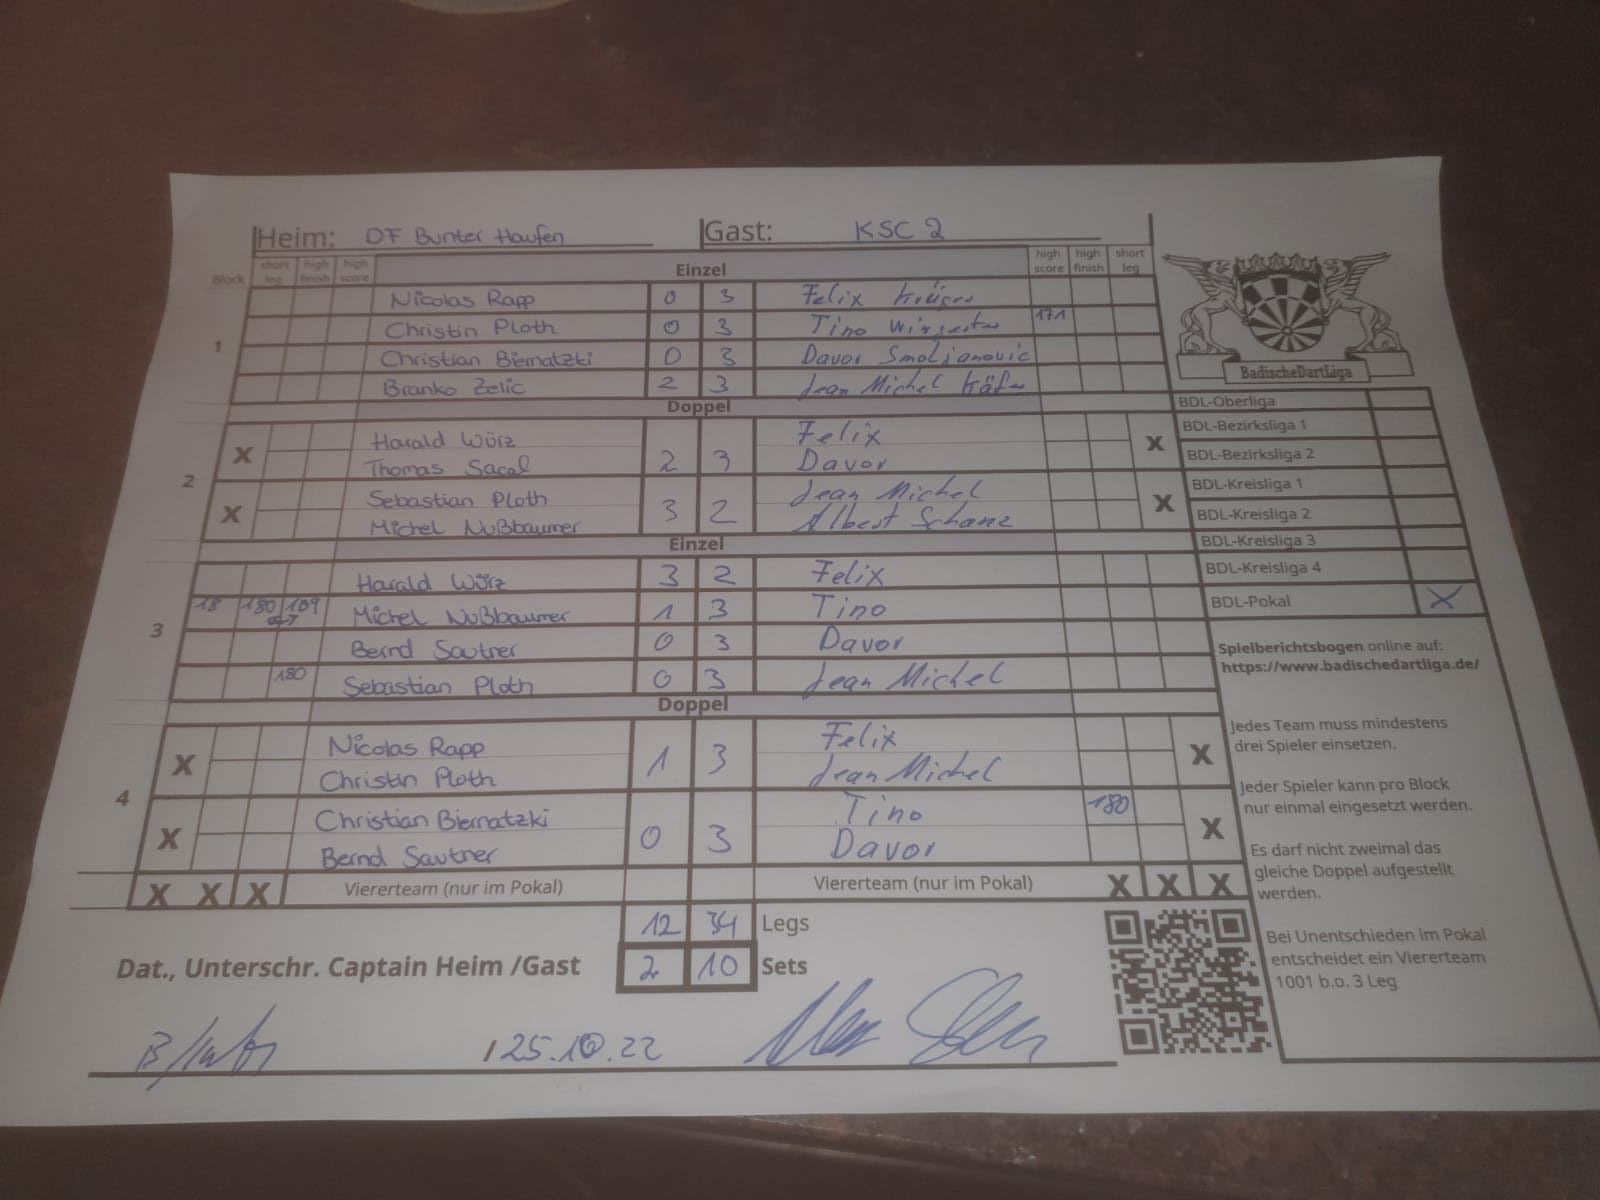 Heim: DF Bunter Haufen Gast: KSC 2
Block short leg high finish high score Einzel high score high finish short leg
1
Nicolas Rapp 0 3 Felix Krüger
Christin Ploth 0 3 Tino 171
Christian Biernatzki 0 3 Davor Smoljanovic
Branko Zelic 2 3 Jean Michel Käfer
Doppel
2
X Harald Würz Felix X
Thomas Sacal 2 3 Davor
X Sebastian Ploth 3 2 Jean Michel X
Michel Nußbaumer Albert Schanz
Einzel
3
Harald Würz 3 2 Felix
18 180 109 Michel Nußbaumer 1 3 Tino
Bernd Sautner 0 3 Davor
180 Sebastian Ploth 0 3 Jean Michel
Doppel
4
X Nicolas Rapp 1 3 Felix X
Christin Ploth Jean Michel
X Christian Biernatzki 0 3 Tino 180 X
Bernd Sautner Davor
X X X Viererteam (nur im Pokal) Viererteam (nur im Pokal) X X X
12 34 Legs
Dat., Unterschr. Captain Heim /Gast 2 10 Sets
/25.10.22
BadischeDartLiga
BDL-Oberliga
BDL-Bezirksliga 1
BDL-Bezirksliga 2
BDL-Kreisliga 1
BDL-Kreisliga 2
BDL-Kreisliga 3
BDL-Kreisliga 4
BDL-Pokal X
Spielberichtsbogen online auf:
https://www.badischedartliga.de/
Jedes Team muss mindestens
drei Spieler einsetzen.
Jeder Spieler kann pro Block
nur einmal eingesetzt werden.
Es darf nicht zweimal das
gleiche Doppel aufgestellt
werden.
Bei Unentschieden im Pokal
entscheidet ein Viererteam
1001 b.o. 3 Leg